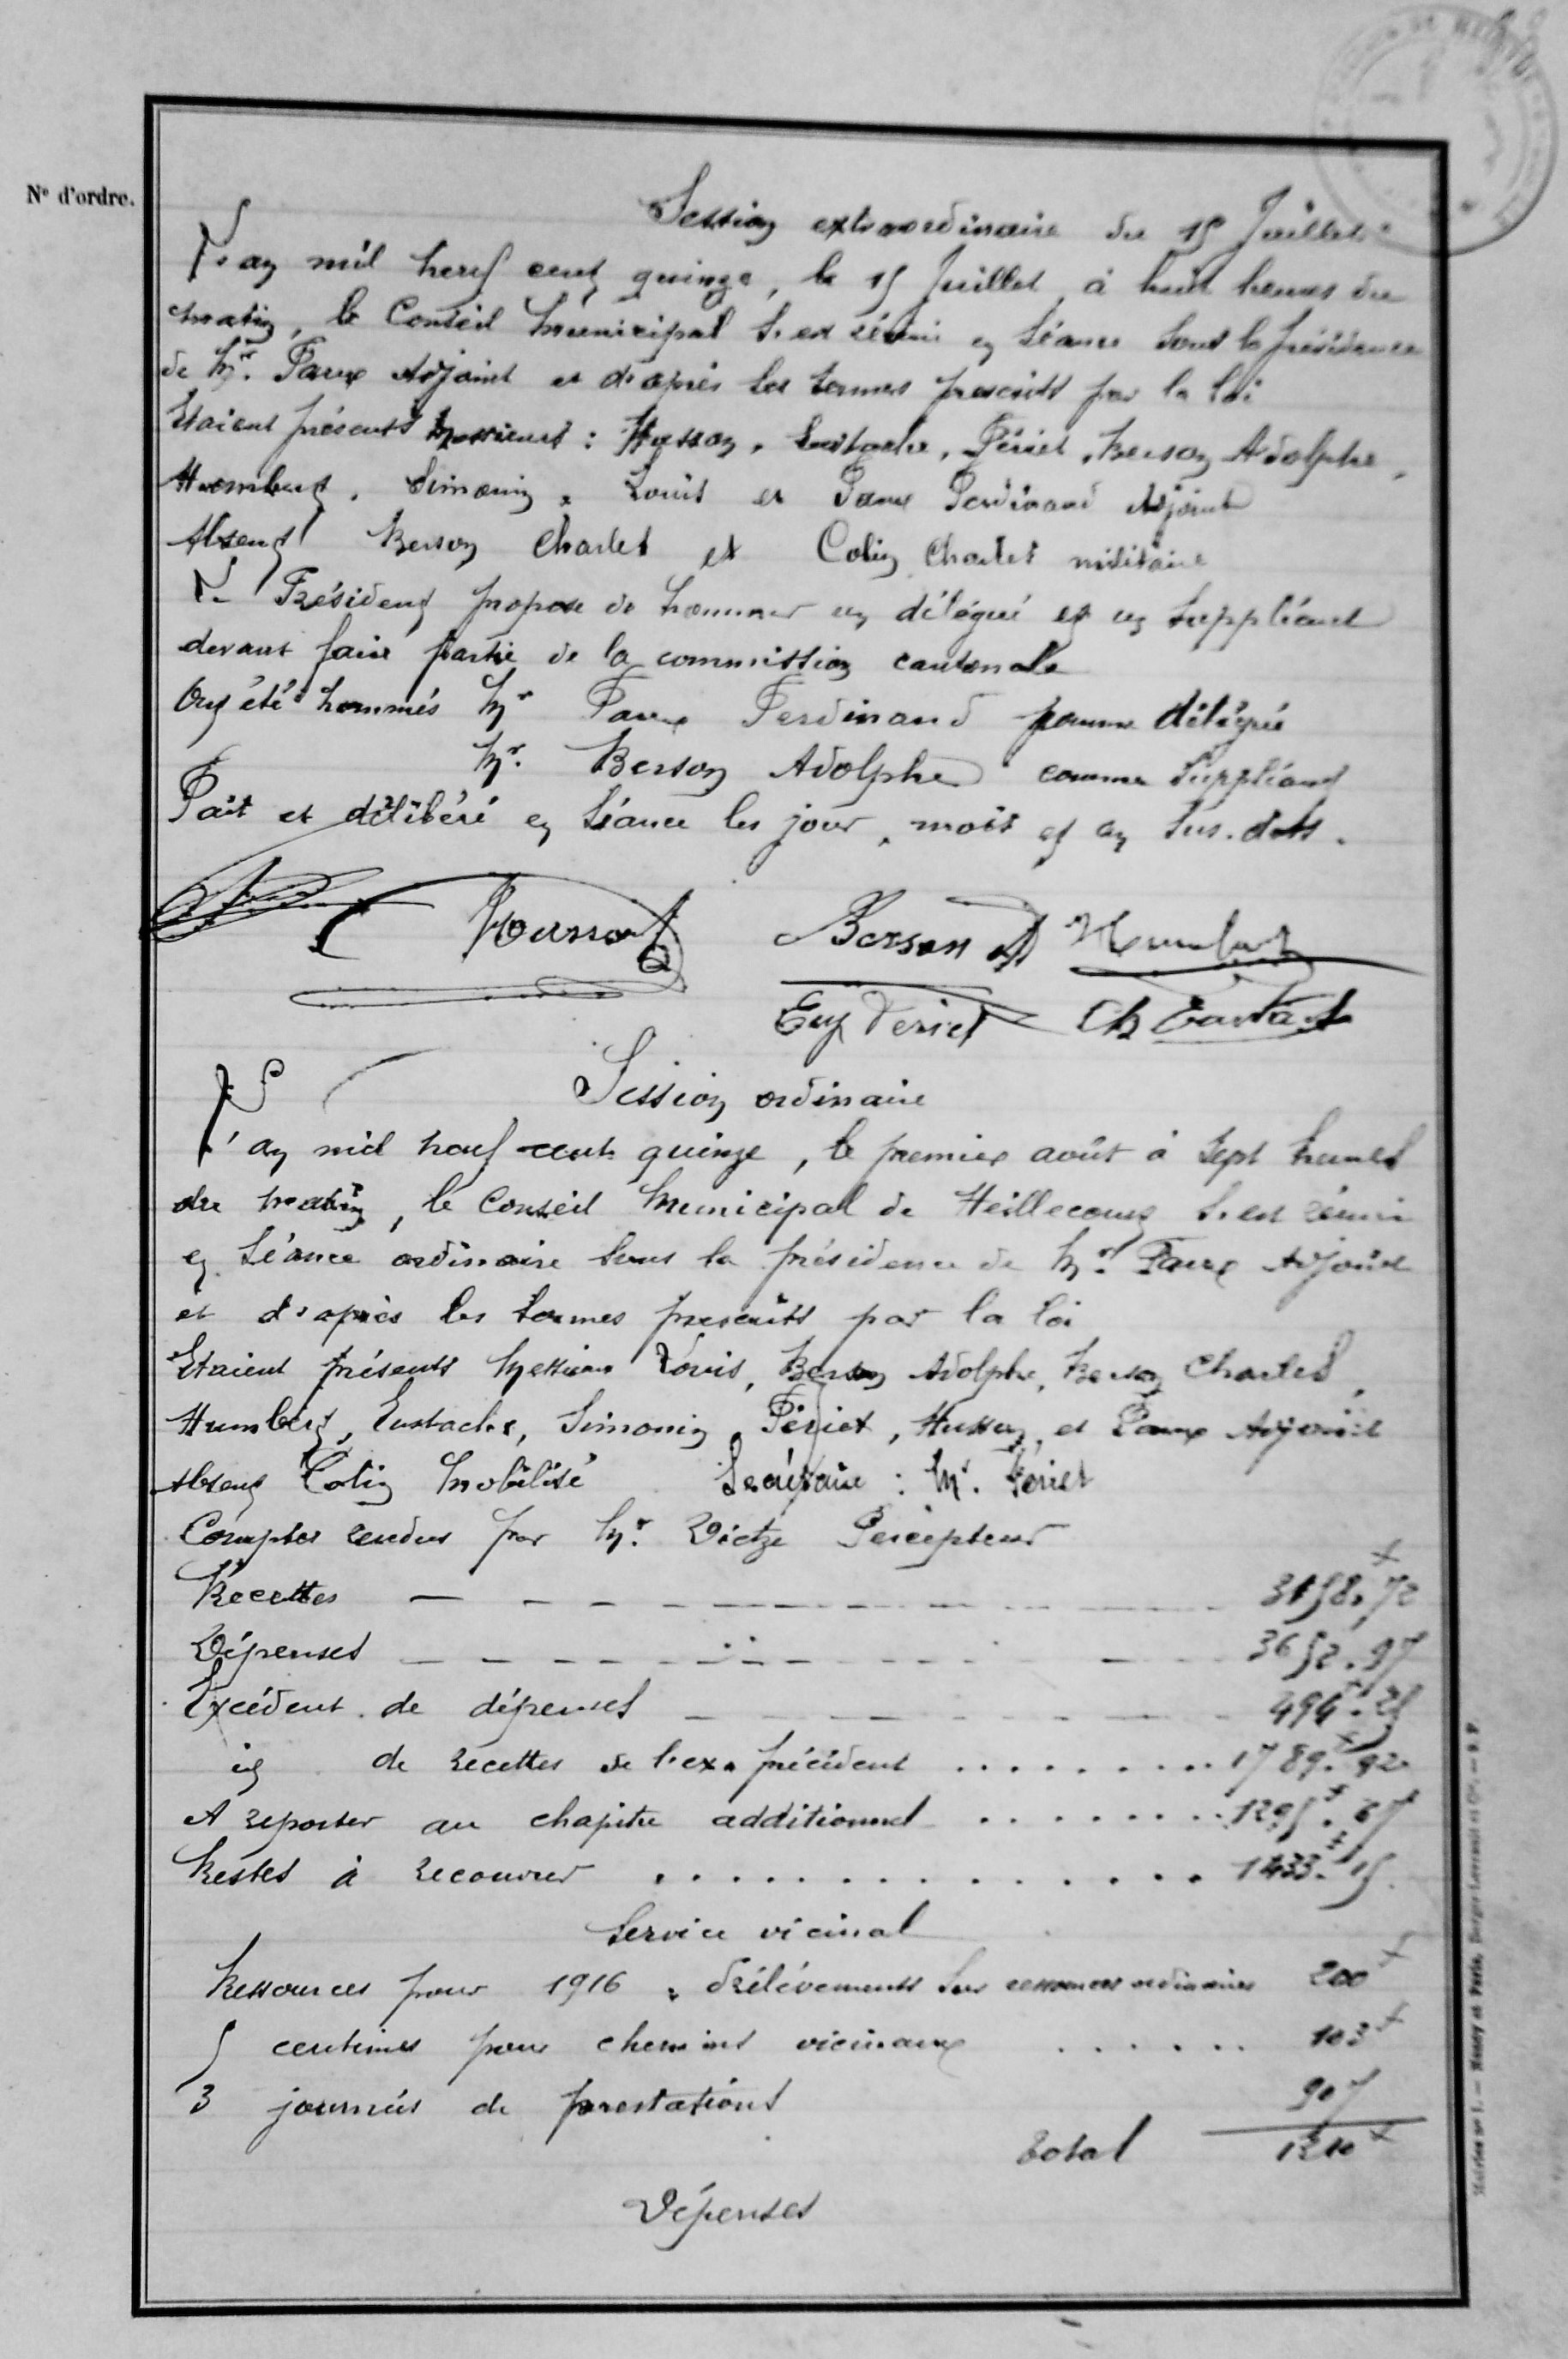 N° d'ordre.
Session extraordinaire du 15 Juillet
L'an mil neuf cent quinze, le 15 Juillet, à huit heures du
matin, le Conseil Municipal s'est réuni en séance sous la présidence
de Mr. Faux Adjoint et d'après les termes prescrits par la loi
Etaient présents Messieurs : Husson, Eustache, Périet, Berson Adolphe,
Humbert, Simonin, Louis et Faux Ferdinand Adjoint
Absent Berson Charles et Colin Charles militaire
Le Président propose de nommer un délégué et un suppléant
devant faire partie de la commission cantonale
Ont été nommés Mr Faux Ferdinand comme délégué
Mr. Berson Adolphe comme suppléant
Fait et délibéré en séance les jour, mois et an sus-dits.
Housson Berson A Humbert
Eug Periet Ch Eustache
Session ordinaire
L'an mil neuf cent quinze, le premier août à sept heures
du matin, le Conseil Municipal de Heillecourt s'est réuni
en séance ordinaire sous la présidence de Mr. Faux Adjoint
et d'après les termes prescrits par la loi
Etaient présents Messieurs Louis, Berson Adolphe, Berson Charles,
Humbert, Eustache, Simonin, Périet, Husson, et Faux Adjoint
Absent Colin Mobilisé Secrétaire : Mr. Périet
Comptes rendus par Mr. Dietze Percepteur
Recettes 3158,72
Dépenses 3652.97
Excédent de dépenses 494.25
id de recettes de l'ex. précédent 1789.92
A reporter au chapitre additionnel 1295.67
Restes à recouvrer 1433.15
Service vicinal
Ressources pour 1916, Prélèvements sur ressources ordinaires 200f
5 centimes pour chemins vicinaux 103f
3 journées de prestations 907
Total 1210f
Dépenses